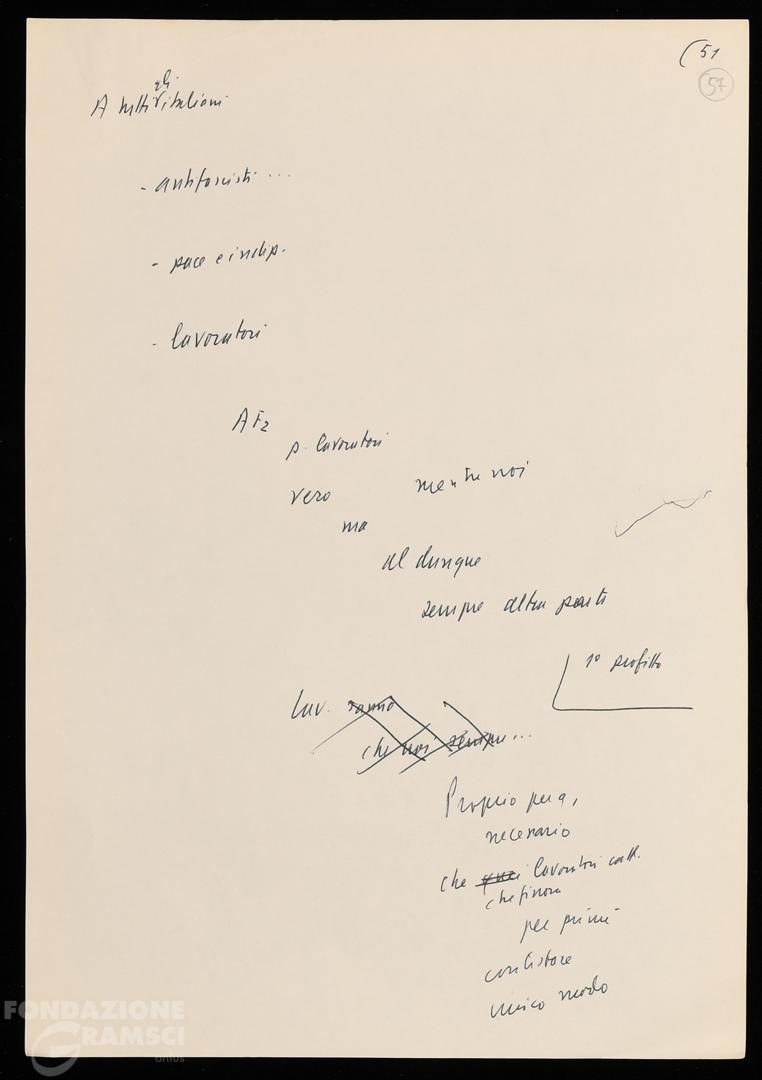 (51
57
A tutti gli italiani
- antifascisti ...
- pace e indip.
- lavoratori
AF2
p. lavoratori
vero mentre noi
ma
al dunque
sempre altra parte
1° profitto
Lav. sanno
che noi sempre...
Proprio per q,
necessario
che lavoratori catt.
che finora
per primi
contestare
unico modo
FONDAZIONE
GRAMSCI
onlus